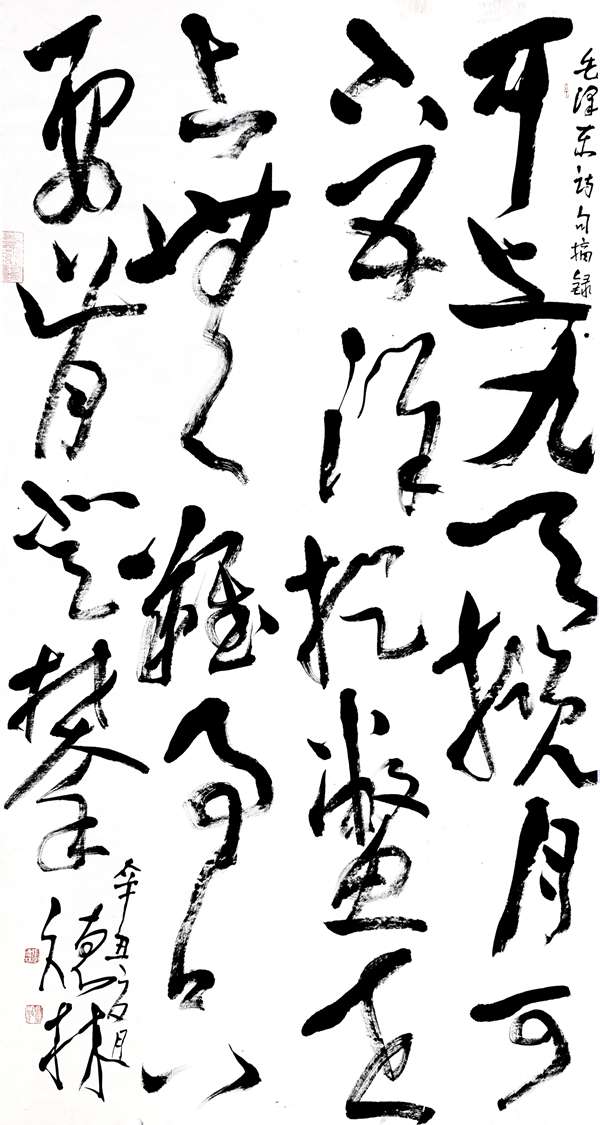 毛泽东诗句摘录
可上九天揽月可
下五洋捉鳖世
上無難事只
要肯登攀
辛丑 月
德林